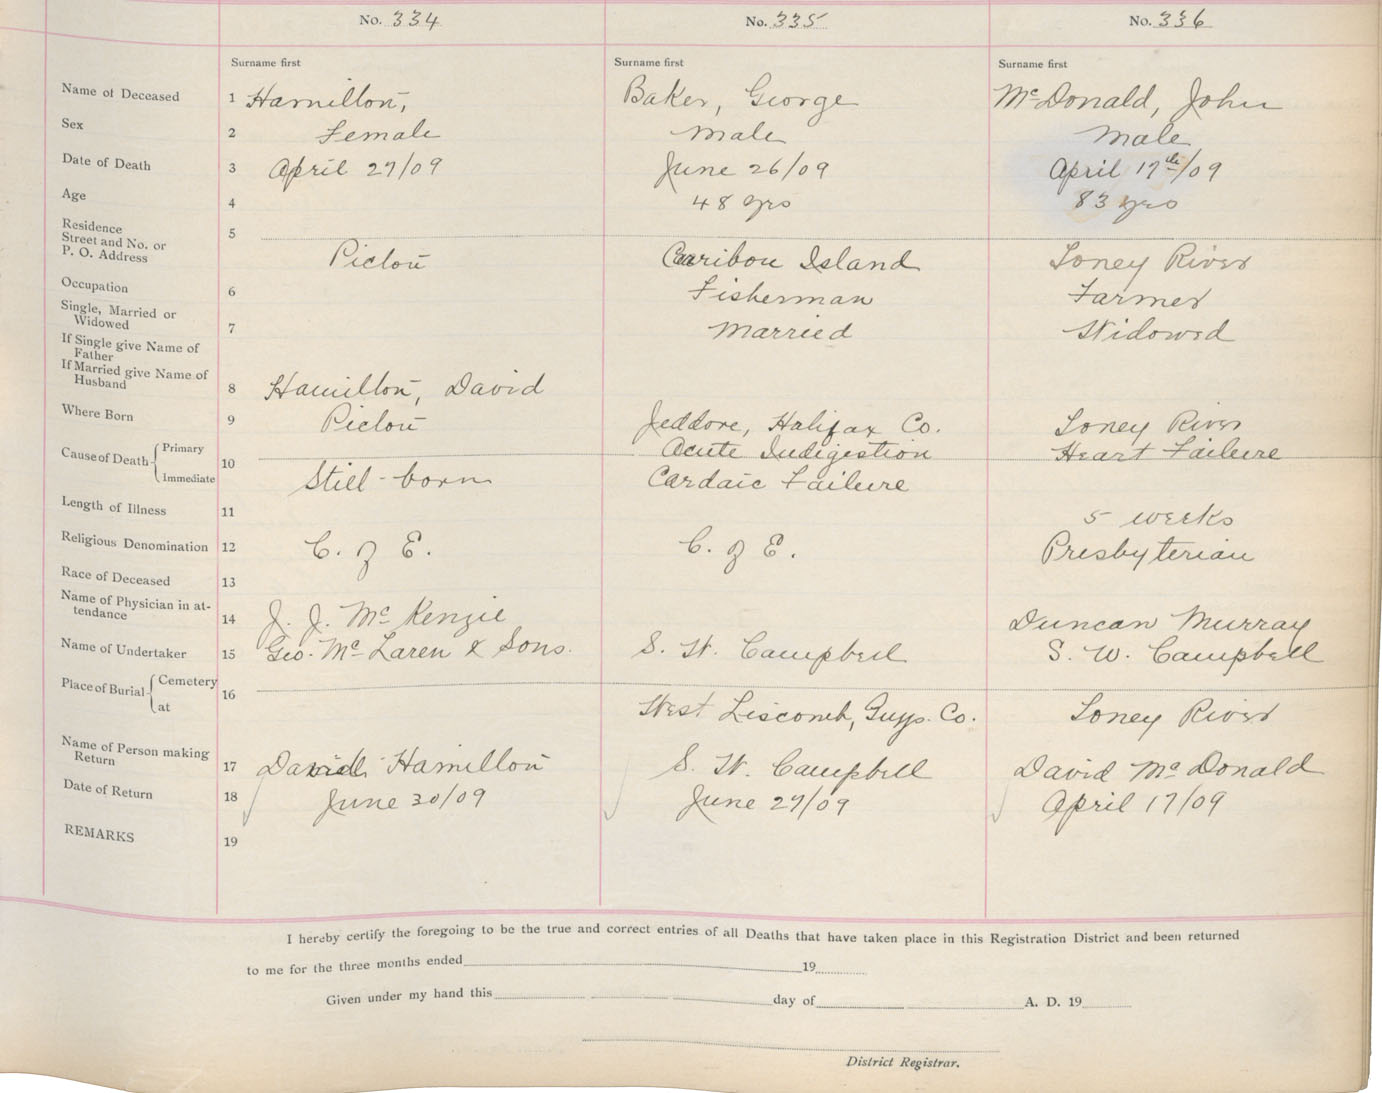 No. 334 No. 335 No. 336
Surname first Surname first Surname first
Name of Deceased 1 Hamilton, Baker, George McDonald, John
Sex 2 Female Male Male
Date of Death 3 April 27/09 June 26/09 April 17th/09
Age 4 48 yrs 83 yrs
Residence
Street and No. or 5
P. O. Address Pictou Caribou Island Toney River
Occupation 6 Fisherman Farmer
Single, Married or
Widowed 7 Married Widowed
If Single give Name of
Father
If Married give Name of
Husband 8 Hamilton, David
Where Born 9 Pictou Jeddore, Halifax Co. Toney River
Cause of Death Primary Acute Indigestion Heart Failure
10
Immediate Still-born Cardaic Failure
Length of Illness 11 5 weeks
Religious Denomination 12 C. of E. C. of E. Presbyterian
Race of Deceased 13
Name of Physician in at-
tendance 14 J. J. McKenzie Duncan Murray
Name of Undertaker 15 Geo. McLaren & Sons. S. W. Campbell S. W. Campbell
Place of Burial Cemetery 16
at West Liscomb, Guys. Co. Toney River
Name of Person making
Return 17 David Hamilton S. W. Campbell David McDonald
Date of Return 18 June 30/09 June 27/09 April 17/09
REMARKS 19
I hereby certify the foregoing to be the true and correct entries of all Deaths that have taken place in this Registration District and been returned
to me for the three months ended 19
Given under my hand this day of A. D. 19
District Registrar.